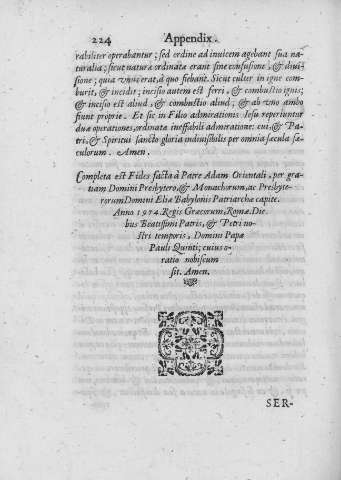 224 Appendix.
rabiliter operabantur; sed ordine ad inuicem agebant sua na-
turalia; sicut naturæ ordinatæ erant sine confusione, & diui-
sione; quia vnus erat, à quo fiebant. Sicut culter in igne com-
burit, & incidit; incisio autem est ferri, & combustio ignis;
& incisio est aliud, & combustio aliud; & ab vno ambo
fiunt proprie. Et sic in Filio admirationis Iesu reperiuntur
duæ operationes, ordinatæ ineffabili admiratione: cui, & Pa-
tri, & Spiritui sancto gloria indiuisibilis per omnia sæcula sæ-
culorum. Amen.
Completa est Fides facta à Patre Adam Orientali, per gra-
tiam Domini Presbytero, & Monachorum, ac Presbyte-
rorum Domini Eliæ Babylonis Patriarchæ capite.
Anno 1974. Regis Græcorum, Romæ. Die
bus Beatissimi Patris, & Petri no-
stri temporis, Domini Papæ
Pauli Quinti; cuius o-
ratio nobiscum
sit. Amen.
SER-